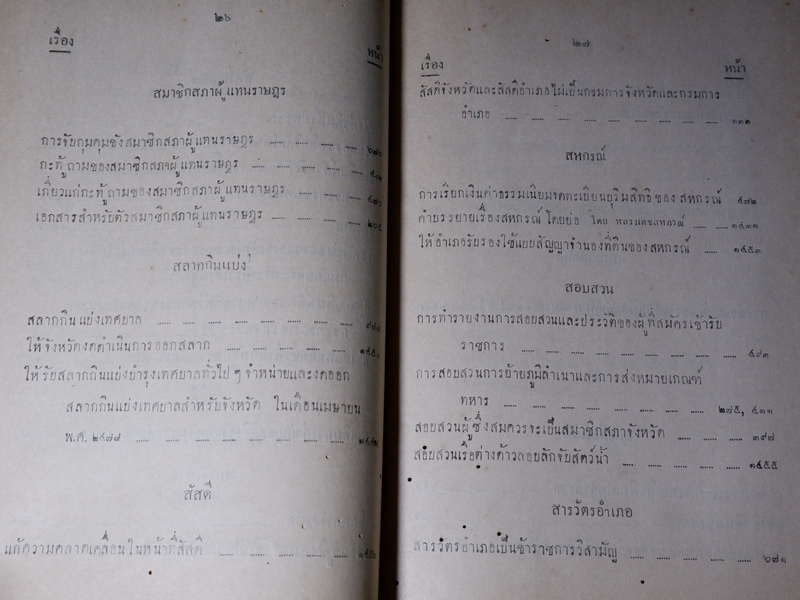 ๒๖
เรื่อง
หน้า
สมาชิกสภาผู้แทนราษฎร
การจับกุมคุมขังสมาชิกสภาผู้แทนราษฎร
กะทู้ถามของสมาชิกสภาผู้แทนราษฎร
เกี่ยวแก่กะทู้ถามของสมาชิกสภาผู้แทนราษฎร
เอกสารสำหรับตัวสมาชิกสภาผู้แทนราษฎร
สลากกินแบ่ง
สลากกินแบ่งเทศบาล
ให้จังหวัดงดดำเนินการออกสลาก
ให้รับสลากกินแบ่งบำรุงเทศบาลทั่วไป ๆ จำหน่ายและงดออก
สลากกินแบ่งเทศบาลสำหรับจังหวัด ในเดือนเมษายน
พ.ศ. ๒๔๗๘
สัสดี
แก้ความคลาดเคลื่อนในหน้าที่สัสดี
๒๗
เรื่อง
หน้า
สัสดีจังหวัดและสัสดีอำเภอไม่เป็นกรมการจังหวัดและกรมการ
อำเภอ
สหกรณ์
การเรียกเงินค่าธรรมเนียมจดทะเบียนบุริมสิทธิของ สหกรณ์ ๔๗๒
คำบรรยายเรื่องสหกรณ์ โดยย่อ โดย ๑๔๓๑
ให้อำเภอรับรองใช้แบบสัญญาจำนองที่ดินของสหกรณ์ ๑๔๕๓
สอบสวน
การทำรายงานการสอบสวนและประวัติของผู้ที่สมัครเข้ารับ
ราชการ ๔๙๓
การสอบสวนการย้ายภูมิลำเนาและการส่งหมายเกณฑ์
ทหาร ๒๗๕, ๔๑๑
สอบสวนผู้ซึ่งสมควรจะเป็นสมาชิกสภาจังหวัด ๓๙๗
สอบสวนเรือต่างด้าวลอบลักจับสัตว์น้ำ ๑๔๕๕
สารวัตรอำเภอ
สารวัตรอำเภอเป็นข้าราชการวิสามัญ ๖๗๑